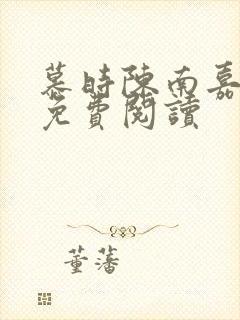 慕時陳南嘉
免費閱讀
董藩